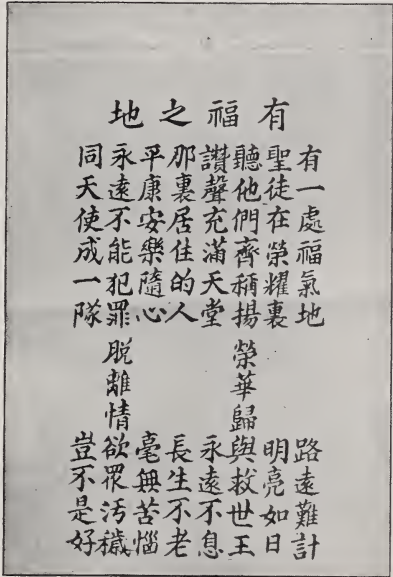 有福之地
有一處福氣地 路遠難計
聖徒在榮耀裏 明亮如日
聽他們齊稱揚 榮華歸與救世王
讚聲充滿天堂 永遠不息
那裏居住的人 長生不老
平康安樂隨心 毫無苦惱
永遠不能犯罪 脫離情欲眾污穢
同天使成一隊 豈不是好